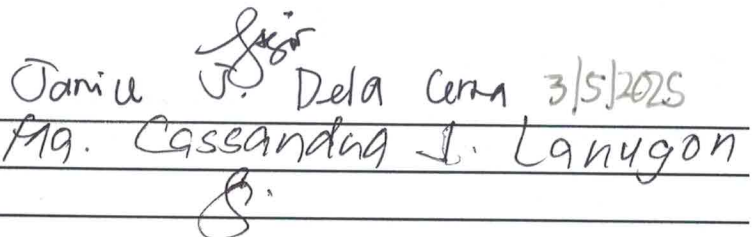 Janice J. Dela Cerna 3/5/2025
Ma. Cassandra J. Lanugon